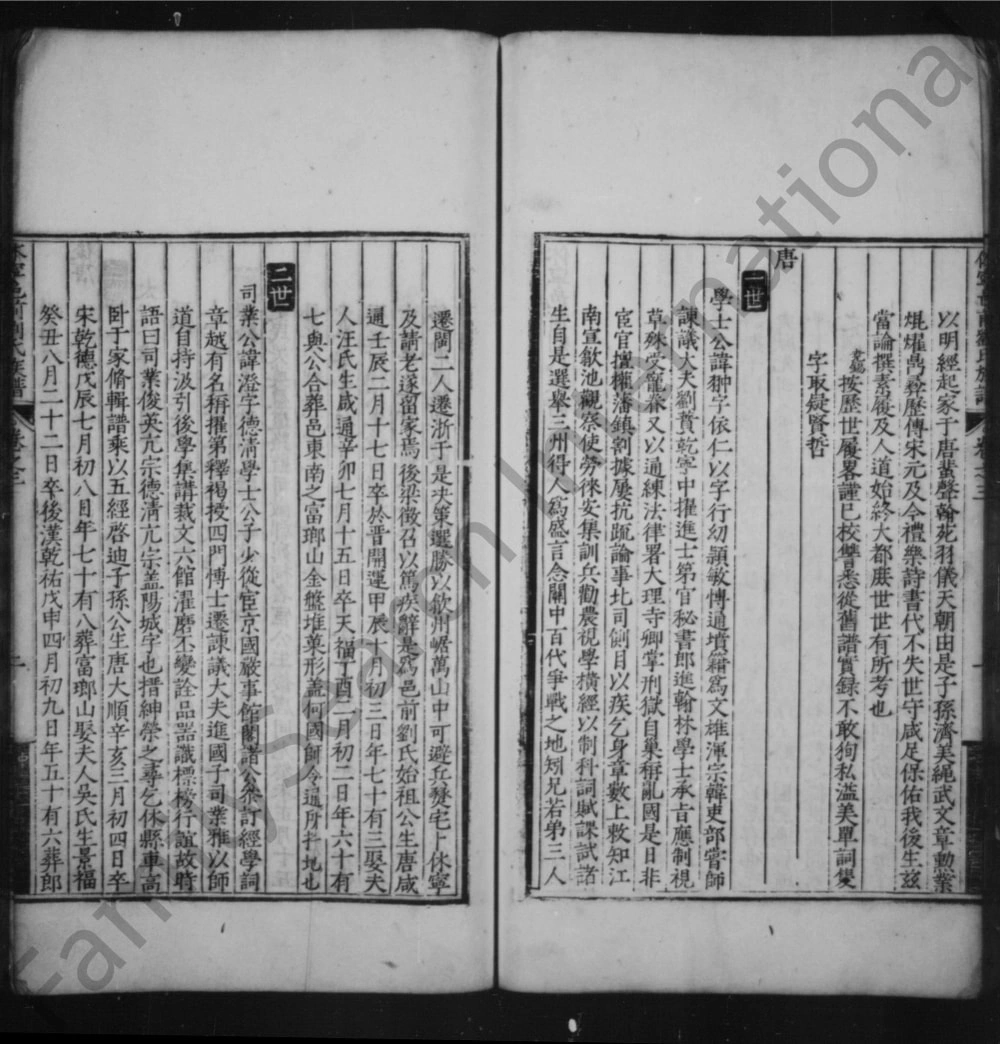 以明經起家于唐蜚聲翰苑羽儀天朝由是子孫濟美繩武文章勳業
焜燿歷傳宋元及今禮樂詩書代不失世守咸足保佑我後生茲
當論撰嘉履及人道始終大都庶世世有所考也
按歷世履畧謹已校讐悉從舊譜實錄不敢狥私溢美單詞隻
字取疑賢哲
唐
一世
學士公諱翀字依仁以字行幼頴敏愽通墳籍爲文雄渾宗韓吏部嘗師
諫議大夫劉蕡乾寧中擢進士第官秘書郎進翰林學士承旨應制視
草殊受寵眷又以通練法律署大理寺卿掌刑獄自巢稱亂國是日非
宦官擅權藩鎮割據屢抗疏論事北司側目以疾乞身章數上敕知江
南宣歙池觀察使勞徠安集訓兵勸農視學橫經以制科詞賦課試諸
生自是選舉三州得人爲盛言念關中百代爭戰之地矧兄若弟三人
遷閩二人遷浙于是决策選勝以歙州嶓萬山中可避兵燹宅卜休寧
及請老遂留家焉後梁徵召以篤疾辭是爲邑前劉氏始祖公生唐咸
通壬辰二月十七日卒於晋開運甲辰十月初三日年七十有三娶夫
人汪氏生咸通辛卯七月十五日卒天福丁酉二月初二日年六十有
七與公合葬邑東南之富瑯山金盤堆菓形盖何國師令通所扦地也
二世
司業公諱澄字德淸學士公子少從宦京國嚴事館閣諸公叅訂經學詞
章越有名稱擢第釋褐授四門愽士遷諫議大夫進國子司業雅以師
道自持汲引後學集講裁文六館濯磨丕變詮品噐識標榜行誼故時
語曰司業俊英亢宗德淸亢宗盖陽城字也搢紳榮之尋乞休縣車高
卧于家脩輯譜乘以五經啓迪子孫公生唐大順辛亥三月初四日卒
宋乾德戊辰七月初八日年七十有八葬富瑯山娶夫人吳氏生景福
癸丑八月二十二日卒後漢乾祐戊申四月初九日年五十有六葬郎
休寧邑前劉氏族譜
FamilySearch International